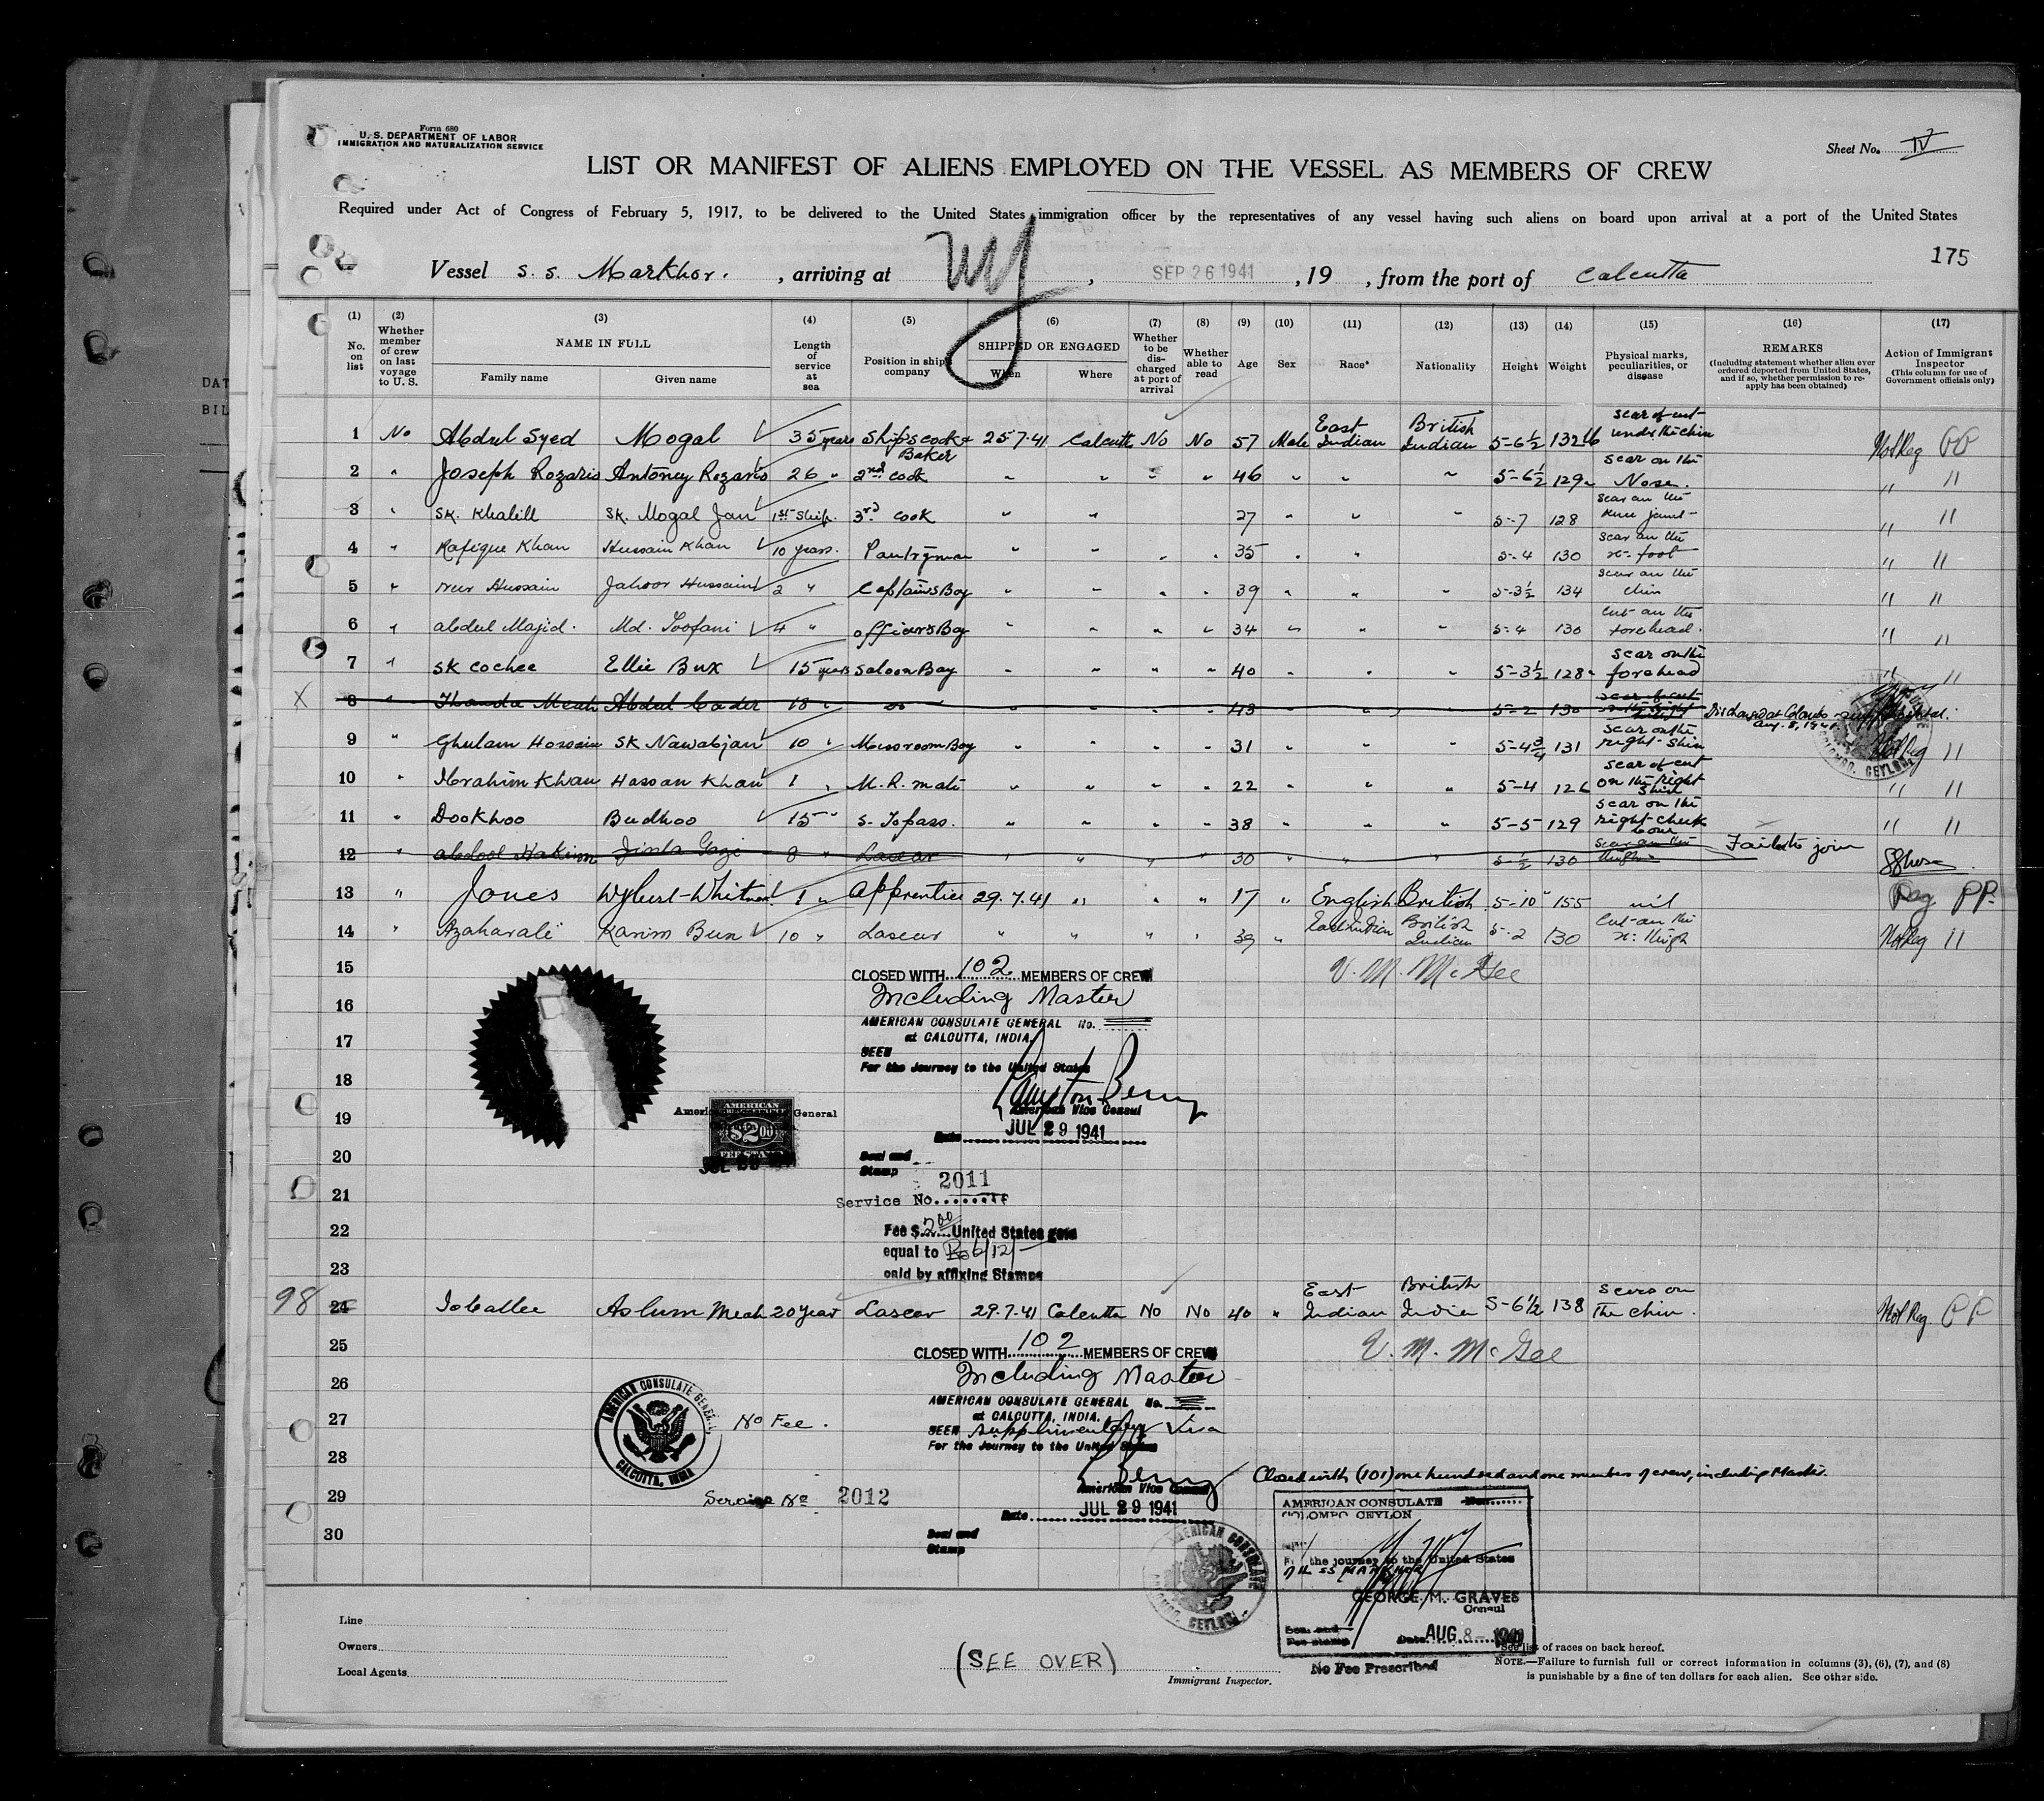 Form 680
U. S. DEPARTMENT OF LABOR
IMMIGRATION AND NATURALIZATION SERVICE
Sheet No. IV
LIST OR MANIFEST OF ALIENS EMPLOYED ON THE VESSEL AS MEMBERS OF CREW
Required under Act of Congress of February 5, 1917, to be delivered to the United States immigration officer by the representatives of any vessel having such aliens on board upon arrival at a port of the United States
175
Vessel S. S. Markhor. , arriving at NY , SEP 26 1941 , 19 , from the port of Calcutta
DAT
BIL
(1) No. on list
(2) Whether member of crew on last voyage to U. S.
(3) NAME IN FULL Family name Given name
(4) Length of service at sea
(5) Position in ship's company
(6) SHIPPED OR ENGAGED When Where
(7) Whether to be discharged at port of arrival
(8) Whether able to read
(9) Age
(10) Sex
(11) Race*
(12) Nationality
(13) Height
(14) Weight
(15) Physical marks, peculiarities, or disease
(16) REMARKS (Including statement whether alien ever ordered deported from United States, and if so, whether permission to reapply has been obtained)
(17) Action of Immigrant Inspector (This column for use of Government officials only)
1 No Abdul Syed Mogal 35 years Ship's cook & Baker 25-7-41 Calcutta No No 57 Male East Indian British Indian 5-6½ 132 lb scar of cut under the chin Not Reg PP
2 " Joseph Rozario Antoney Rozario 26 " 2nd cook " " " " 46 " " " 5-6½ 129 " scar on the Nose. " "
3 " SK. Khalill SK. Mogal Jan 1st ship. 3rd cook " " 27 " " " 5-7 128 scar on the knee joint " "
4 " Rafique Khan Hussain Khan 10 years. Pantryman " " " " 35 " " 5-4 130 scar on the rt. foot " "
5 " Hussain Jahoor Hussain 2 " Captain's Boy " " " " 39 " " " 5-3½ 134 scar on the chin " "
6 " abdul Majid. Md. Toofani 4 " officers Boy " " " " 34 " " " 5-4 130 cut on the forehead. " "
7 " SK Cochee Ellie Bux 15 years Saloon Boy " " " " 40 " " " 5-3½ 128 " scar on the forehead " "
X 8 " Meah Abdul Cader 18 " do " " " " 43 " " " 5-2 130 scar of cut Discharged at Colombo Aug. 8, 1941
9 " Ghulam Hossain SK Nawabjan 10 " Messroom Boy " " " " 31 " " " 5-4¾ 131 scar on the right shin Not Reg "
10 " Ibrahim Khan Hassan Khan 1 " M. R. mate " " " " 22 " " " 5-4 126 scar of cut on the right shin " "
11 " Dookhoo Budhoo 15 " S. Topass. " " " " 38 " " " 5-5 129 scar on the right cheek bone " "
12 " abdool Hakim Gazi 8 " Lascar " " " " 30 " " " 5-½ 130 scar on the thigh Failed to join
13 " Jones Wylbert-Whitmond 1 " apprentice 29.7.41 " " " 17 " English British 5-10 155 nil Reg PP
14 " Azaharali Karim Bux 10 " Lascar " " " " 39 " East Indian British Indian 5-2 130 cut on the rt. thigh Not Reg "
15
CLOSED WITH 102 MEMBERS OF CREW
V. M. McGee
16
Including Master
AMERICAN CONSULATE GENERAL No.
17
at CALCUTTA, INDIA.
SEEN
For the Journey to the United States
18
American Vice Consul
19
American General
AMERICAN
$2.00
FEE STAMP
Date JUL 29 1941
20
Seal and Stamp
21
Service No. 2011
22
Fee $ 2.00 United States gold
equal to Rs 6/12/-
23
paid by affixing Stamps
98 24 Aslum Meah 20 year Lascar 29-7-41 Calcutta No No 40 " East Indian British India 5-6½ 138 scars on The chin. Not Reg PP
25
CLOSED WITH 102 MEMBERS OF CREW
V. M. McGee
26
Including Master
AMERICAN CONSULATE GENERAL No.
27
AMERICAN CONSULATE GENERAL
CALCUTTA, INDIA
No Fee.
at CALCUTTA, INDIA.
SEEN supplimentary Visa
For the Journey to the United States
28
Closed with (101) one hundred and one members of crew, including Master.
American Vice Consul
29
Service No 2012
Date JUL 29 1941
30
Seal and Stamp
AMERICAN CONSULATE
COLOMBO, CEYLON
AMERICAN CONSULATE
COLOMBO CEYLON
For the journey to the United States
SS MARKHOR
GEORGE M. GRAVES
Consul
Seal and Fee stamp Date AUG 8 - 1941
No Fee Prescribed
Line
Owners
Local Agents
(SEE OVER)
Immigrant Inspector.
*See list of races on back hereof.
NOTE.—Failure to furnish full or correct information in columns (3), (6), (7), and (8)
is punishable by a fine of ten dollars for each alien. See other side.